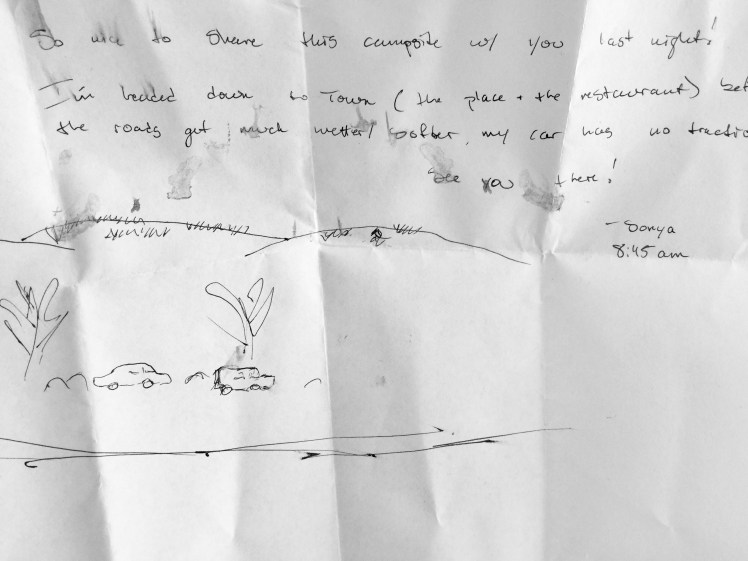 So nice to share this campsite w/ you last night!
I'm headed down to Town (the place + the restaurant) bef
the roads get much wetter/softer, my car has no tractio
See you there!
-Sonya
8:45 am